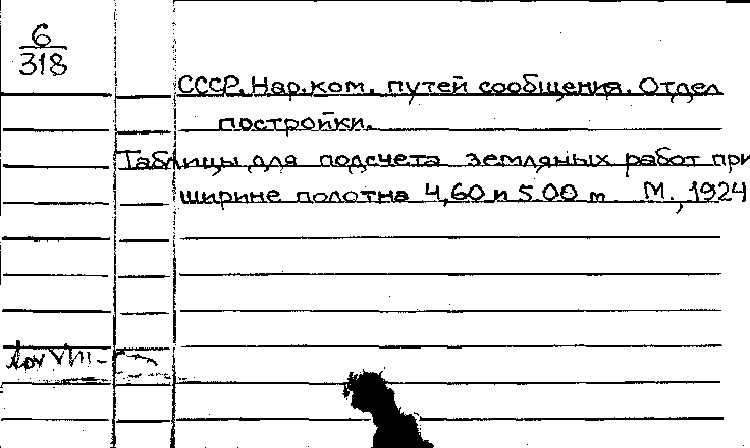 6
318
СССР. Нар.ком. путей сообщения. Отдел
постройки.
Таблицы для подсчета земляных работ при
ширине полотна 4,60 и 5.00 м. М., 1924
VIII-